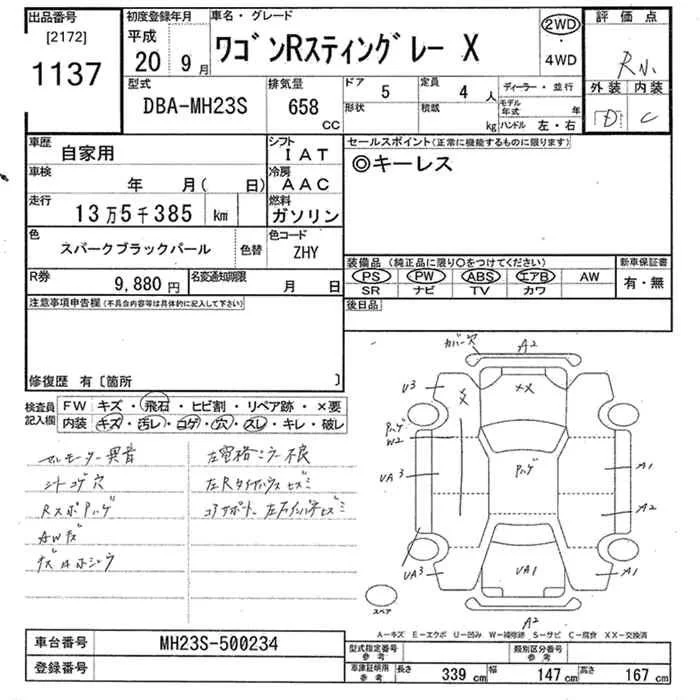 出品番号
[2172]
1137
初度登録年月
平成
20年 9月
車名・グレード
ワゴンRスティングレー X
2WD
・
4WD
評価点
外装 内装
D C
型式
DBA-MH23S
排気量
658
CC
ドア
5
形状
定員
4人
積載
kg
ディーラー・並行
モデル年式 年
ハンドル 左・右
車歴
自家用
シフト
IAT
車検
年 月( 日)
冷房
AAC
走行
13万5千385 km
燃料
ガソリン
色
スパークブラックパール
色替
色コード
ZHY
R券
9,880円
名変通知期限
月 日
セールスポイント(正常に機能するものに限ります)
◎キーレス
装備品(純正品に限り○をつけてください)
PS PW ABS エアB AW
SR ナビ TV カワ
新車保証書
有・無
後日品
注意事項申告欄(不具合内容等は具体的に記入して下さい)
修復歴 有〔箇所 〕
検査員
記入欄
FW キズ・飛石・ヒビ割・リペア跡・×要
内装 キズ・汚レ・コゲ・穴・スレ・キレ・破レ
モーター異音
シートコゲ穴
AWキズ
左電格ミラー不良
カバー穴
A2
U3
XX
W2
UA3
A1
A2
UA3
UA1
A1
スペア
A2
A-キズ E-エクボ U-凹み W-補修跡 S-サビ C-腐食 XX-交換済
車台番号
MH23S-500234
登録番号
型式指定番号
参考
類別区分番号
参考
車庫証明用
参考
長さ 339 cm 幅 147 cm 高さ 167 cm